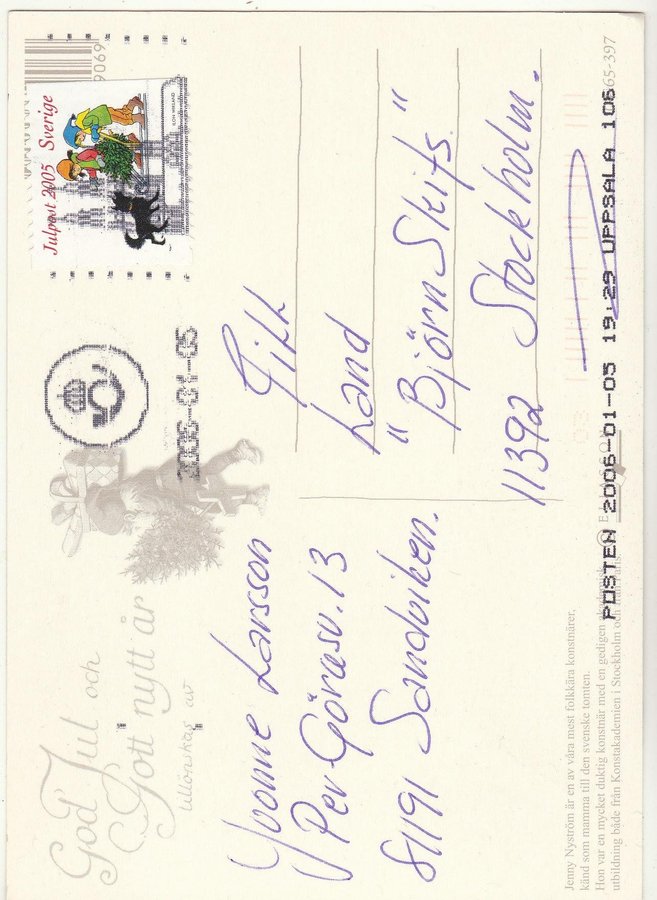 God Jul och
Gott nytt år
tillönskas av
Yvonne Larsson
Per Görasv. 13
81191 Sandviken.
Julpost 2005 Sverige
2006-01-05
Land
"Björn Skifs"
11392 Stockholm.
65-397
POSTEN 2006-01-05 19:29 UPPSALA 106
Jenny Nyström är en av våra mest folkkära konstnärer,
känd som mamma till den svenske tomten.
Hon var en mycket duktig konstnär med en gedigen
utbildning både från Konstakademien i Stockholm och från Paris.